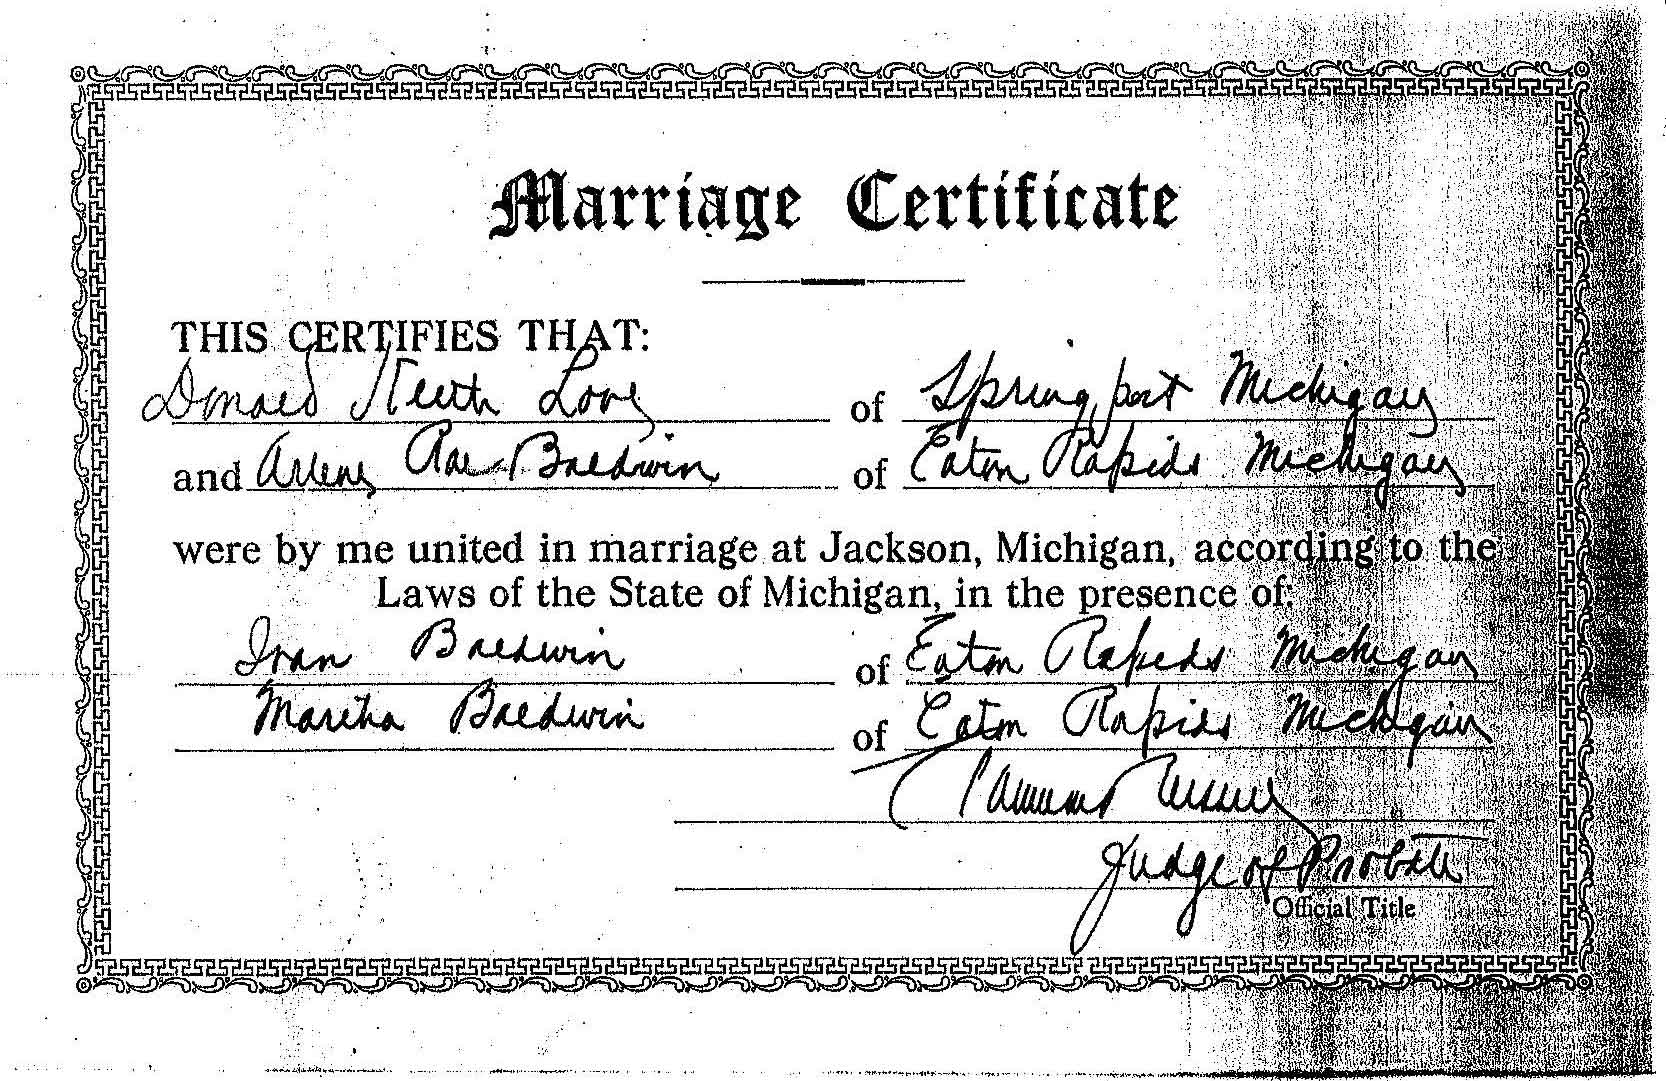 Marriage Certificate
THIS CERTIFIES THAT:
Donald Keith Love of Springport Michigan
and Arlene Rae Baldwin of Eaton Rapids Michigan
were by me united in marriage at Jackson, Michigan, according to the
Laws of the State of Michigan, in the presence of:
Ivan Baldwin of Eaton Rapids Michigan
Martha Baldwin of Eaton Rapids Michigan
Judge of Probate
Official Title